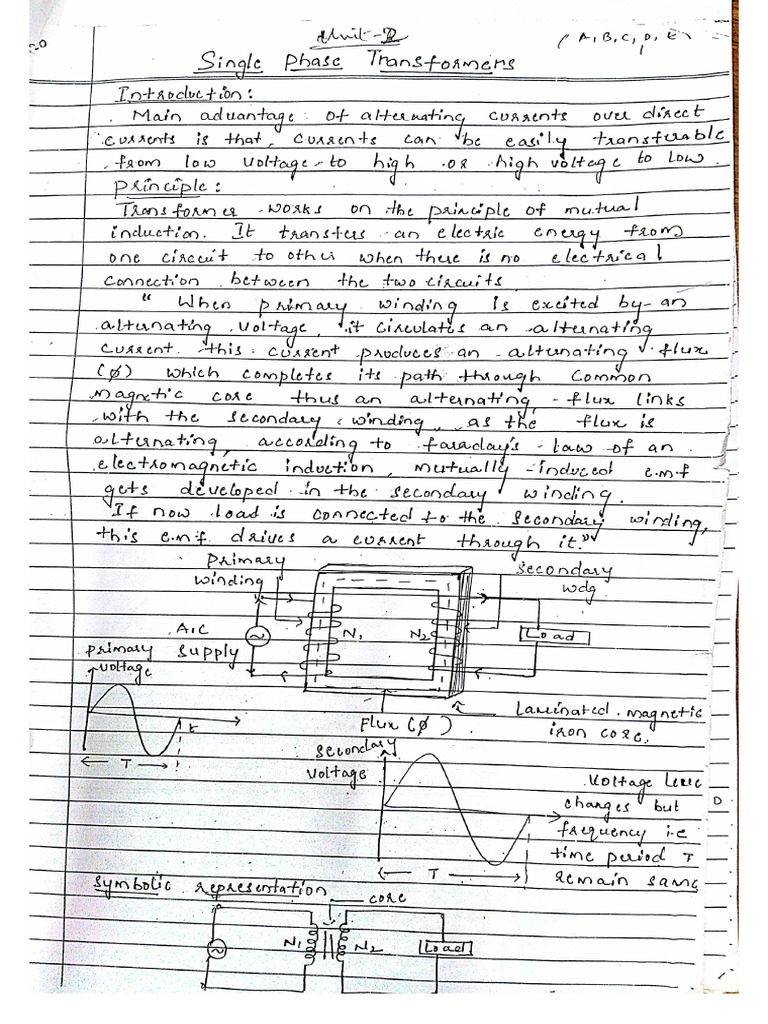 Unit-II
(A,B,C,D,E)
Single Phase Transformers
Introduction:
Main advantage of alternating currents over direct
currents is that, currents can be easily transferable
from low voltage to high or high voltage to low.
Principle:
Transformer works on the principle of mutual
induction. It transfers an electric energy from
one circuit to other when there is no electrical
connection between the two circuits
"When primary winding is excited by an
alternating voltage, it circulates an alternating
current. this current produces an alternating flux
(φ) which completes its path through common
magnetic core thus an alternating flux links
with the secondary winding, as the flux is
alternating, according to faraday's law of an
electromagnetic induction, mutually induced e.m.f
gets developed in the secondary winding.
If now load is connected to the secondary winding,
this e.m.f drives a current through it."
primary
winding
secondary
wdg
A.C
supply
N1
N2
Load
primary
voltage
t
T
Flux (φ)
Laminated magnetic
iron core.
secondary
voltage
T
Voltage level
changes but
frequency i.e
time period T
remain same
D
Symbolic representation
core
N1
N2
Load